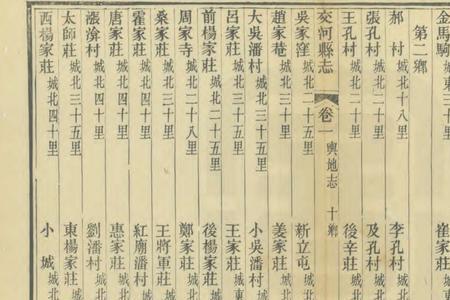 金馬駒 城東三十里 崔家莊
第二鄉
郝村 城北十八里 李孔村 城北
張孔村 城北二十里 及孔村 城北
王孔村 城北二十里 後辛莊 城北
交河縣志 卷一 輿地志 十鄉
吳家窪 城北二十五里 新立屯 城北
趙家菴 城北三十里 姜家莊 城北
大吳潘村 城北三十五里 小吳潘村 城
呂家莊 城北三十五里 王家莊 城東
前楊家莊 城北二十五里 後楊家莊 城
周家寺 城北二十八里 鄭家莊 城北
桑家莊 城北三十里 王將軍莊 城
霍家莊 城北四十里 紅廟潘村 城
唐家莊 城北四十里 惠家莊 城北
村 城北四十里 劉潘村 城北
太師莊 城北三十五里 東楊家莊 城
西楊家莊 城北四十里 小城 城北